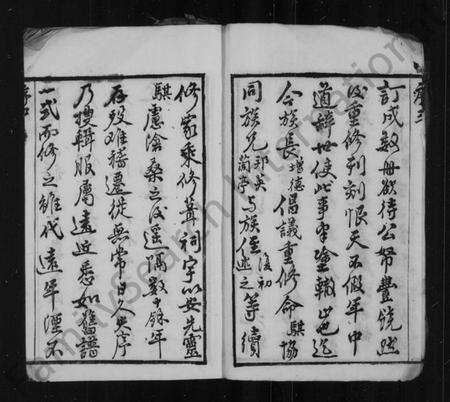 訂成數冊欲待公帑豐饒然
後重修刊刻恨天不假年中
道辭世使此事半途輟止迨
今族長增德倡議重修命騏協
同族兄邦英蘭亭与族侄復初述之等續
修家乘修葺祠宇以安先靈
騏慮滄桑之後遥隔數十餘年
存歿难稽遷徙無常日久失序
乃搜輯服屬遠近悉如舊譜
一式而修之雖代遠年湮不
FamilySearch International